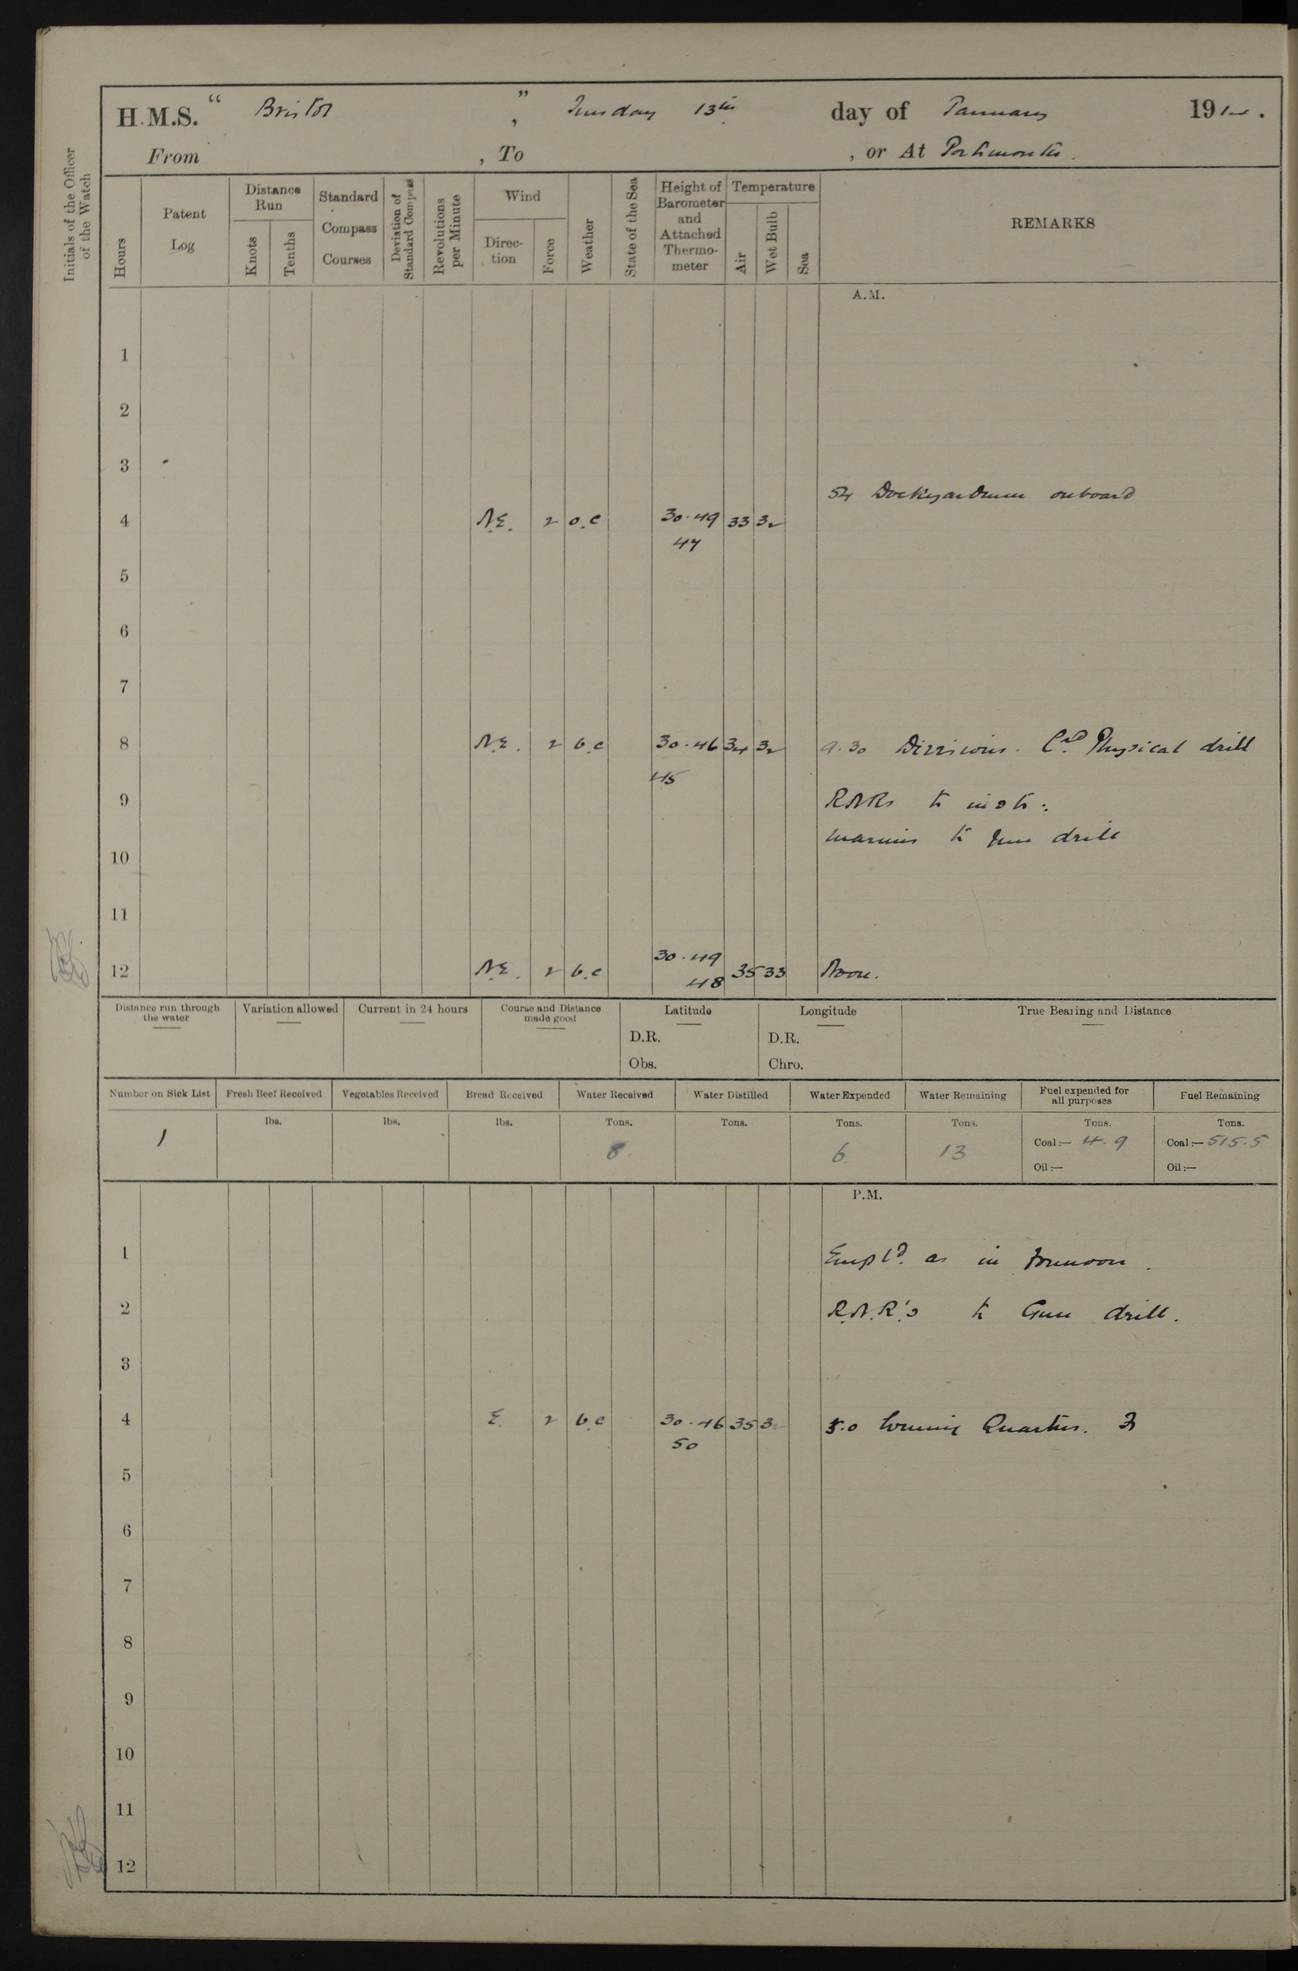 H.M.S. “ Bristol ” , Tuesday 13th day of January 1914.
From , To , or At Portsmouth.
Initials of the Officer of the Watch
Hours
Patent Log
Distance Run
Knots
Tenths
Standard Compass Courses
Deviation of Standard Compass
Revolutions per Minute
Wind
Direc-tion
Force
Weather
State of the Sea
Height of Barometer and Attached Thermo-meter
Temperature
Air
Wet Bulb
Sea
REMARKS
A.M.
1
2
3
54 Dockyardmen onboard
4 N.E. 2 o.c 30.49 33 32
47
5
6
7
8 N.E. 2 b.c 30.46 34 32 9.30 Divisions. Cd Physical drill
45
9 RNRs to instr:
Marines to Gun drill
10
11
12 N.E. 2 b.c 30.49 35 33 Noon.
48
Distance run through the water
Variation allowed
Current in 24 hours
Course and Distance made good
Latitude
D.R.
Obs.
Longitude
D.R.
Chro.
True Bearing and Distance
Number on Sick List Fresh Beef Received Vegetables Received Bread Received Water Received Water Distilled Water Expended Water Remaining Fuel expended for all purposes Fuel Remaining
lbs. lbs. lbs. Tons. Tons. Tons. Tons. Tons. Tons.
1 8 6 13 Coal:— 4.9 Coal:— 515.5
Oil:— Oil:—
P.M.
1 Empld. as in forenoon.
2 R.N.R.'s to Gun drill.
3
4 E. 2 b.c 30.46 35 3 5.0 Evening Quarters.
50
5
6
7
8
9
10
11
12